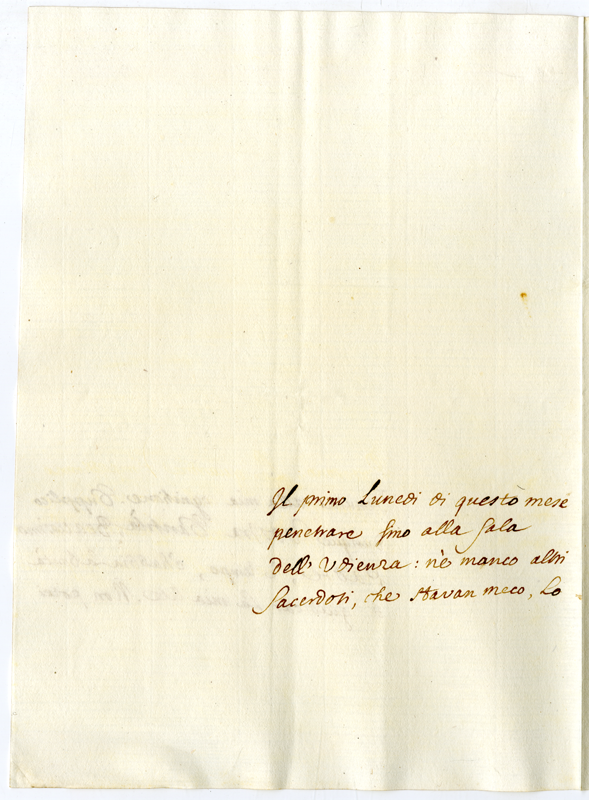 Il primo Lunedi di questo mese
penetrare sino alla sala
dell' Udienza: nè manco altri
Sacerdoti, che stavan meco, Lo